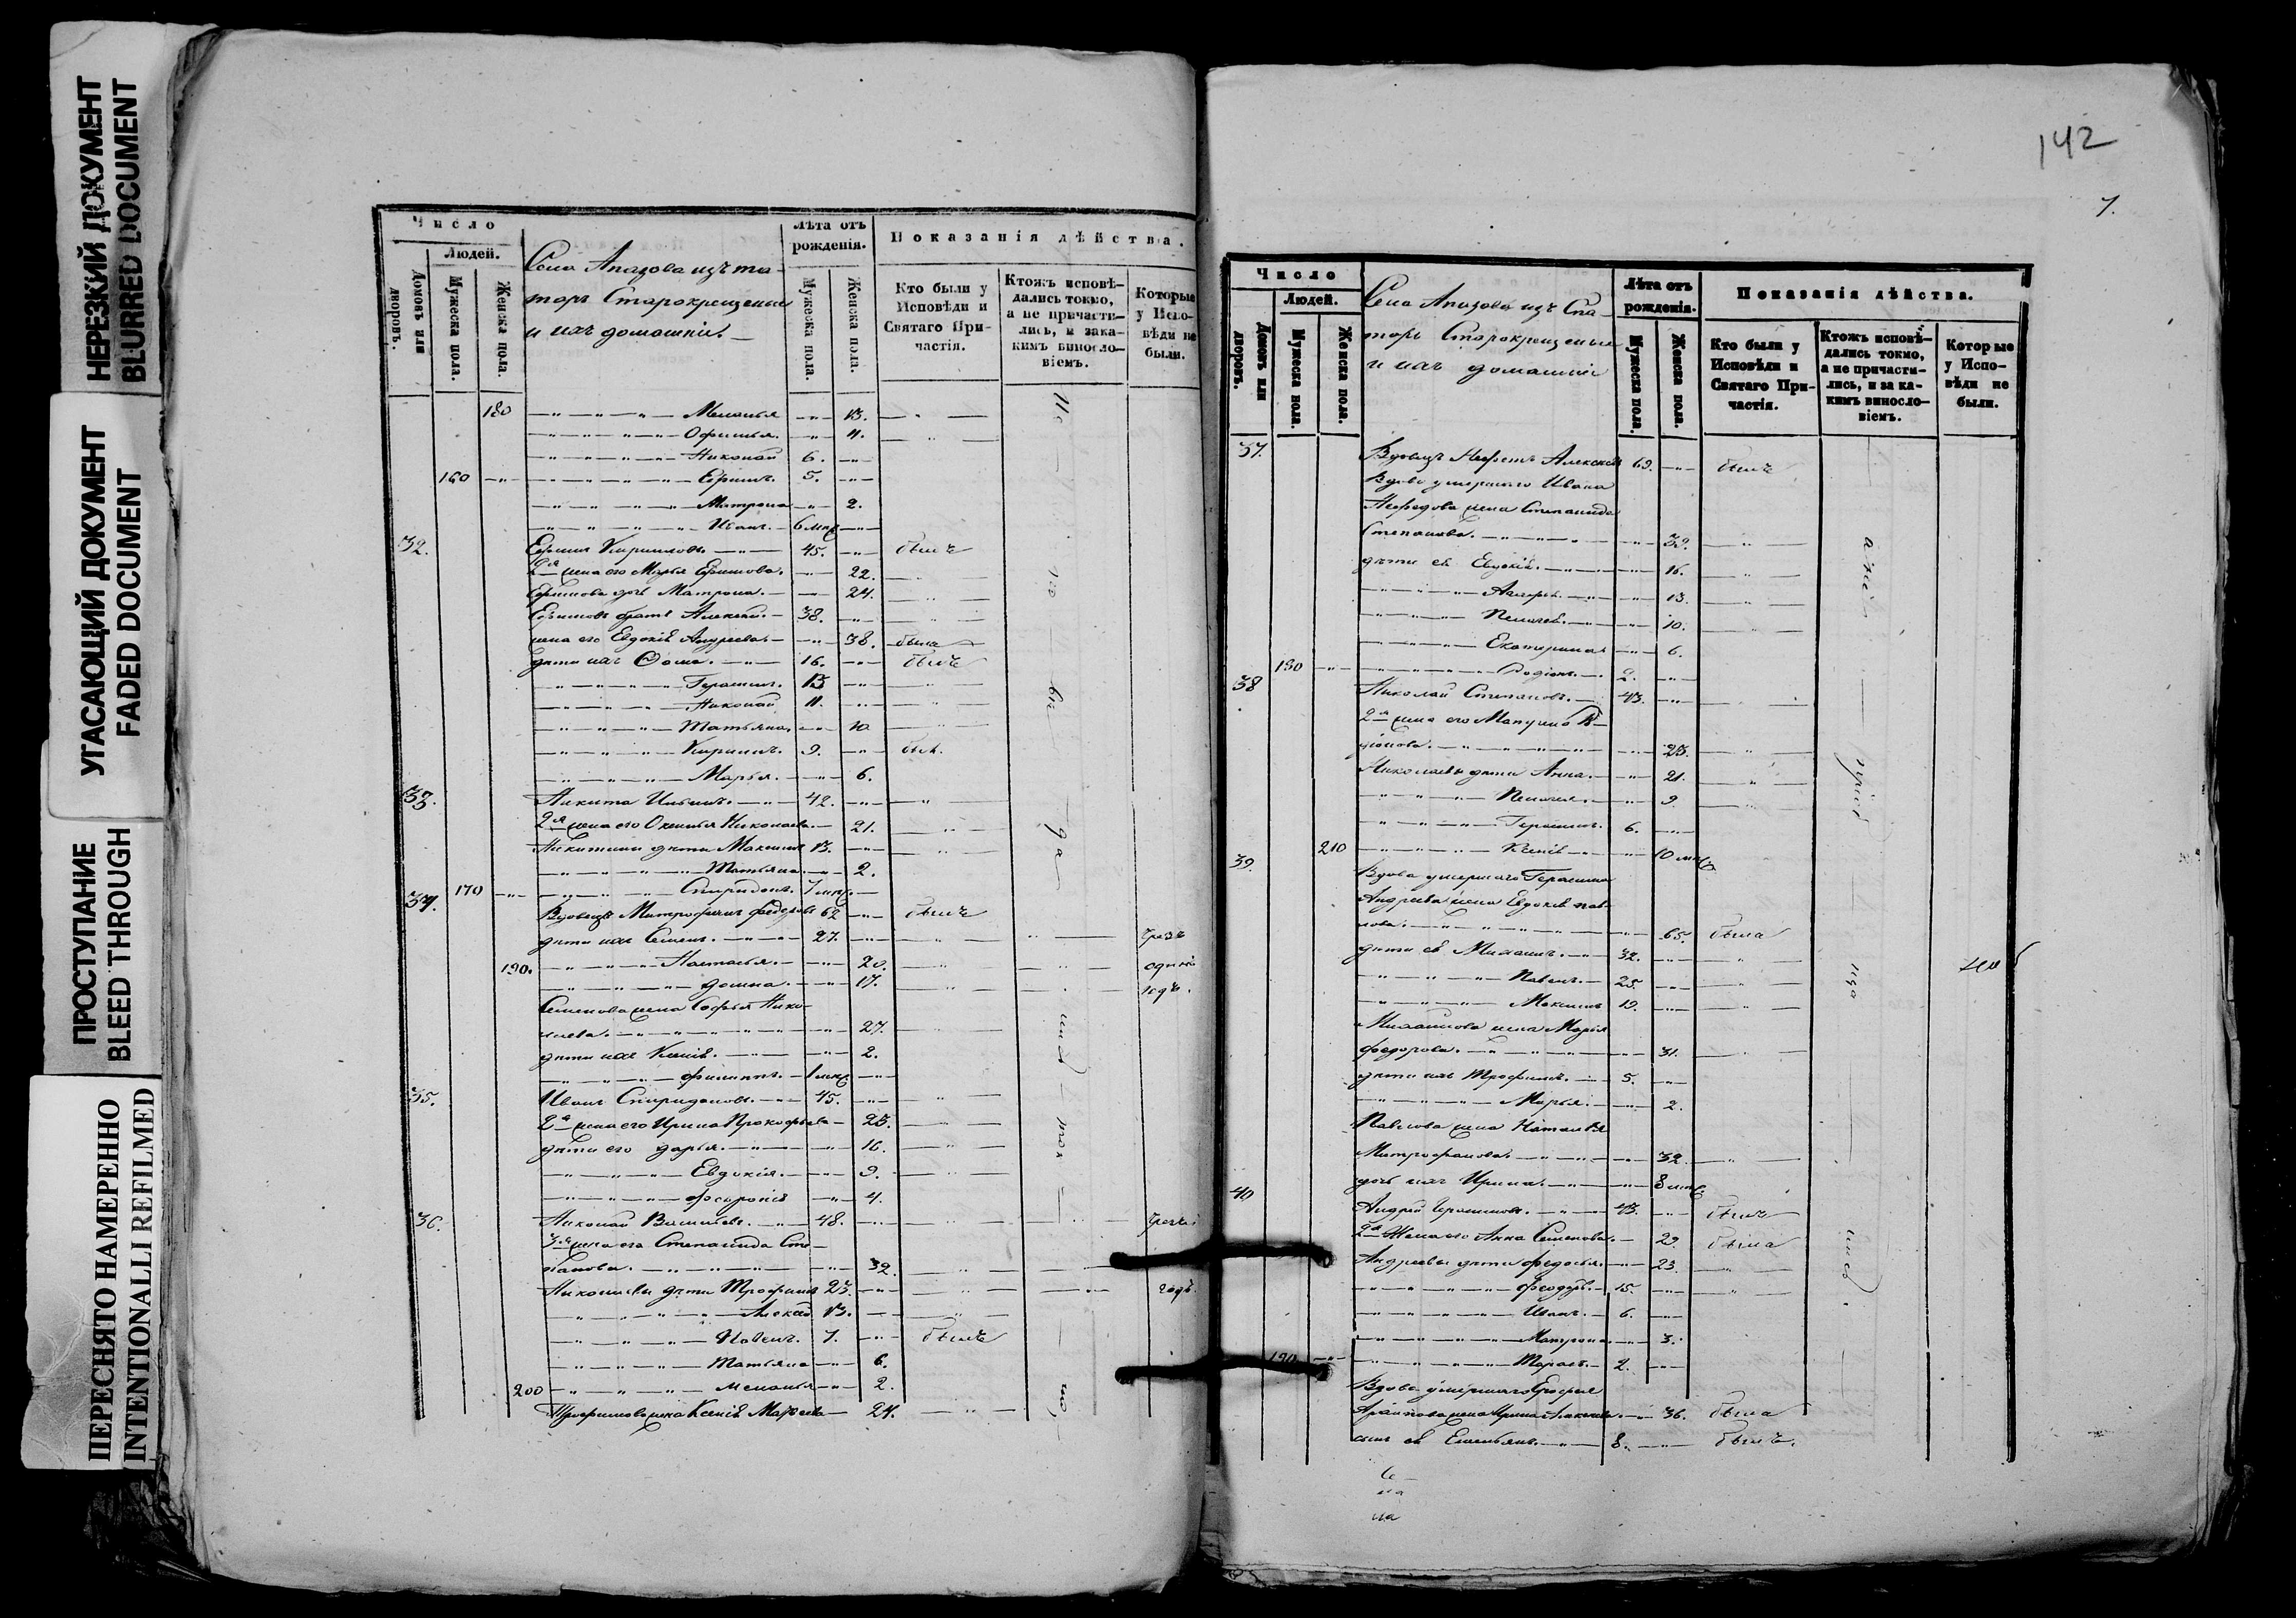 НЕРЕЗКИЙ ДОКУМЕНТ
BLURRED DOCUMENT
УГАСАЮЩИЙ ДОКУМЕНТ
FADED DOCUMENT
ПРОСТУПАНИЕ
BLEED THROUGH
ПЕРЕСНЯТО НАМЕРЕННО
INTENTIONALLI REFILMED
Число
Людей.
Домовъ или дворовъ.
Мужеска пола.
Женска пола.
Села Апазова изъ та-
таръ Старокрещеные
и ихъ домашніе.
Лѣта отъ рожденія.
Мужеска пола.
Женска пола.
Показанія дѣйства.
Кто были у Исповѣди и Святаго При-частія.
Ктожъ исповѣ-дались токмо, а не причасти-лись, и зака-кимъ виносло-віемъ.
Которые у Испо-вѣди не были.
180 Меланья 13.
Офимья. 11.
Николай 6.
160 Ефимъ. 5.
Матрона 2.
Иванъ. 6 мцс
32. Ефимъ Кириловъ. 45. былъ
2я жена его Марья Ефимова. 22.
Ефимова дочь Матрона. 24.
Ефимовъ братъ Алексей. 38.
жена его Евдокія Андреева 38. была
дѣти ихъ Фома. 16. былъ
Герасимъ. 13
Николай. 11.
Татьяна. 10
Кирилъ. 9. был.
Марья. 6.
33. Никита Ильинъ. 42.
2я жена его Николаева. 21.
Никитины дѣти Максимъ 13.
Татьяна 2.
170 Спиридонъ. 7 мцс.
34. Вдовецъ Митрофанъ Федоровъ 62 былъ
дѣти ихъ Семенъ. 27. Чрезъ
190. Настасья. 20. одинъ
Домна. 17. годъ.
Семенова жена Софья Нико-
лаева. 27.
дѣти ихъ Ксенія. 2.
Филиппъ. 1 мцс
35. Иванъ Спиридоновъ. 45.
2я жена его Ирина Прокофьева 25.
дѣти его Дарья. 16.
Евдокія. 9.
Февронія 4.
36. Николай Васильевъ. 48.
3я жена его Степанида Сте-
панова. 32.
Николаевы дѣти Трофимъ 23. годъ.
Алексей 13.
Павелъ. 7. былъ
Татьяна 6.
200 Меланья 2.
Трофимова жена Ксенія 24.
142
7.
Число
Людей.
Домовъ или дворовъ.
Мужеска пола.
Женска пола.
Села Апазова изъ Ста-
таръ Старокрещеные
и ихъ домашніе
Лѣта отъ рожденія.
Мужеска пола.
Женска пола.
Показанія дѣйства.
Кто были у Исповѣди и Святаго При-частія.
Ктожъ исповѣ-дались токмо, а не причасти-лись, и за ка-кимъ виносло-віемъ.
Которые у Испо-вѣди не были.
37. Вдовецъ Алексеевъ 69. былъ
Вдова умершаго Ивана
Нефедова жена Степанида
Степанова. 39.
дѣти ея Евдокія. 16.
13.
Пелагея. 10.
Екатерина 6.
180 Родіонъ. 2.
38 Николай Степановъ. 43.
2я жена его
25.
Николаевы дѣти Анна. 21.
Пелагея. 9.
Герасимъ. 6.
210 Ксенія 10 мцс
39. Вдова умершаго Герасима
Андреева жена Евдокія Пав-
лова. 65. была
дѣти ея Михаилъ. 32.
Павелъ. 25.
Максимъ 19.
Михаилова жена Марья
Федорова. 31.
дѣти ихъ Трофимъ. 5.
Марья. 2.
Павлова жена Наталья
Митрофанова. 32.
дочь ихъ Ирина. 8 мцс.
40 Андрей Герасимовъ. 43. былъ
2я Жена его Анна Семенова. 29. была
Андреевы дѣти Федосья. 23.
Феодоръ. 15.
Иванъ. 6.
Матрона. 3.
190 Тарасъ. 2.
Вдова умершаго
жена Ирина 36. была
сынъ ея Емельянъ. 8. былъ.